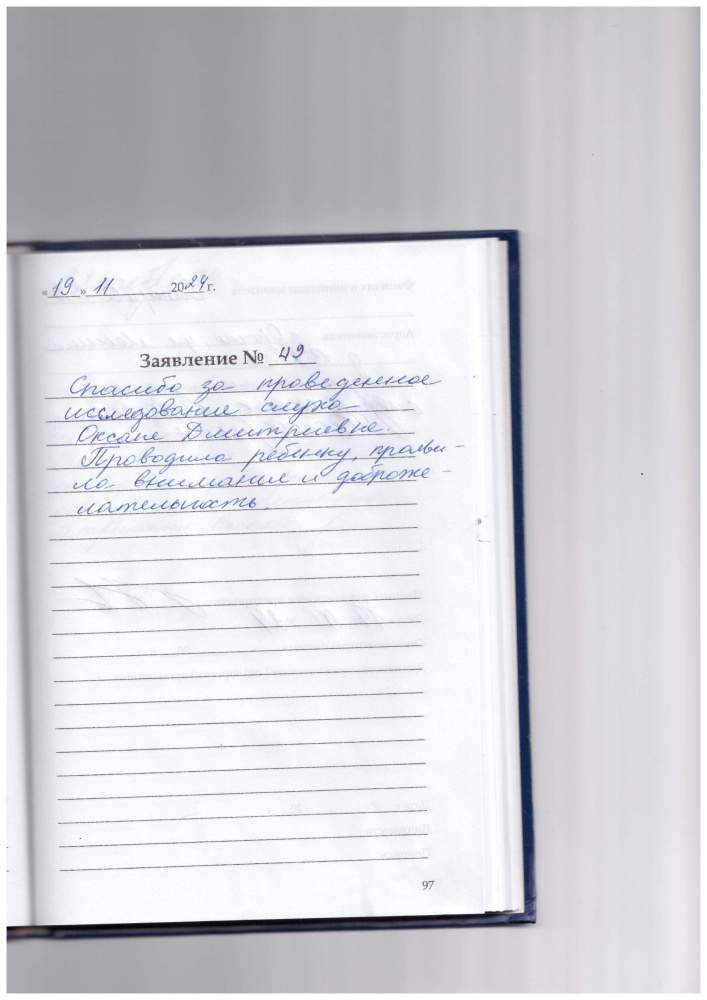 «19» 11 2024 г.
Заявление № 49
Спасибо за проведенное
исследование слуха
Оксане Дмитриевне.
Проводила ребенку, прояви-
ла внимание и доброже-
лательность.
97